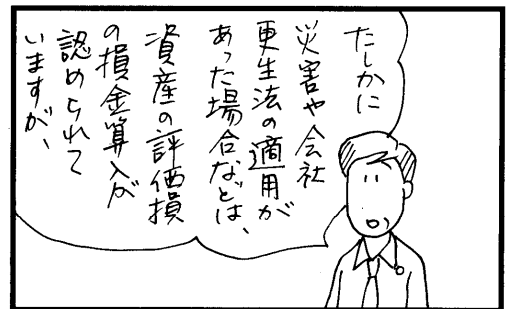 たしかに
災害や会社
更生法の適用が
あった場合などは、
資産の評価損
の損金算入が
認められて
いますが、